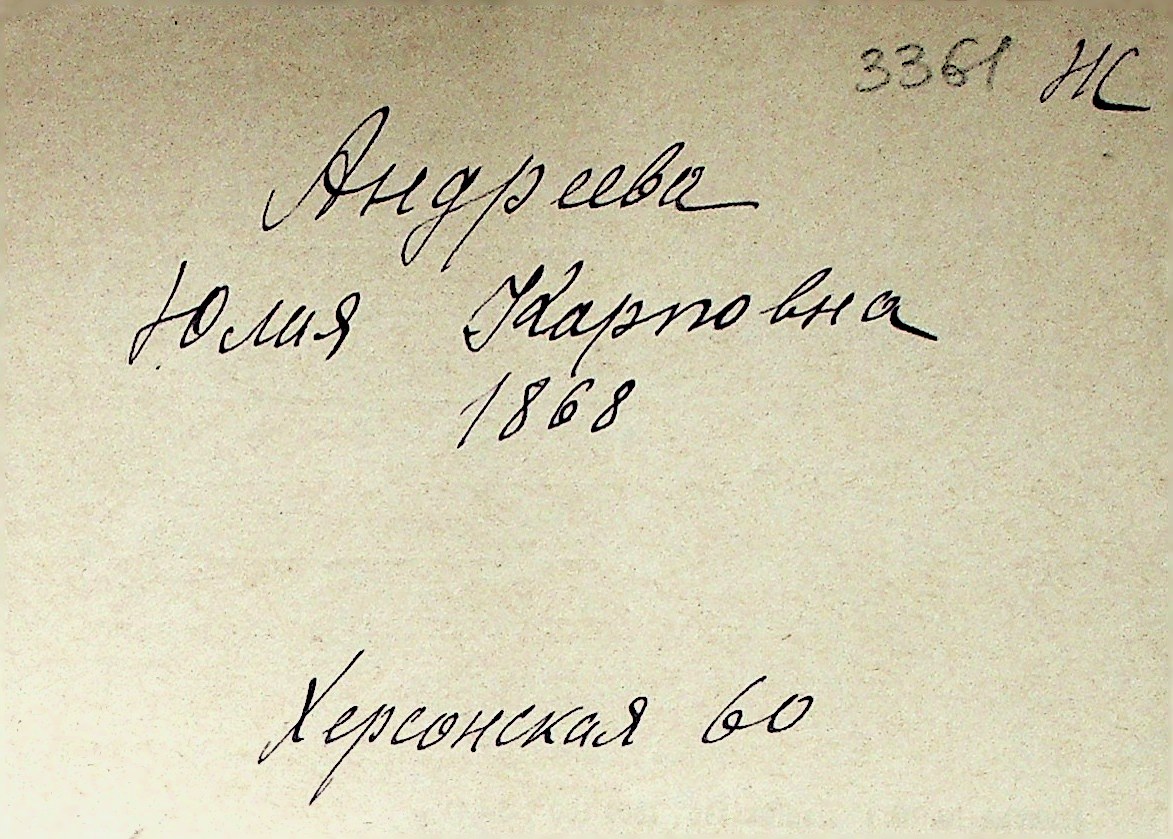 3361 НС
Андреева
Юлия Карповна
1868
Херсонская 60